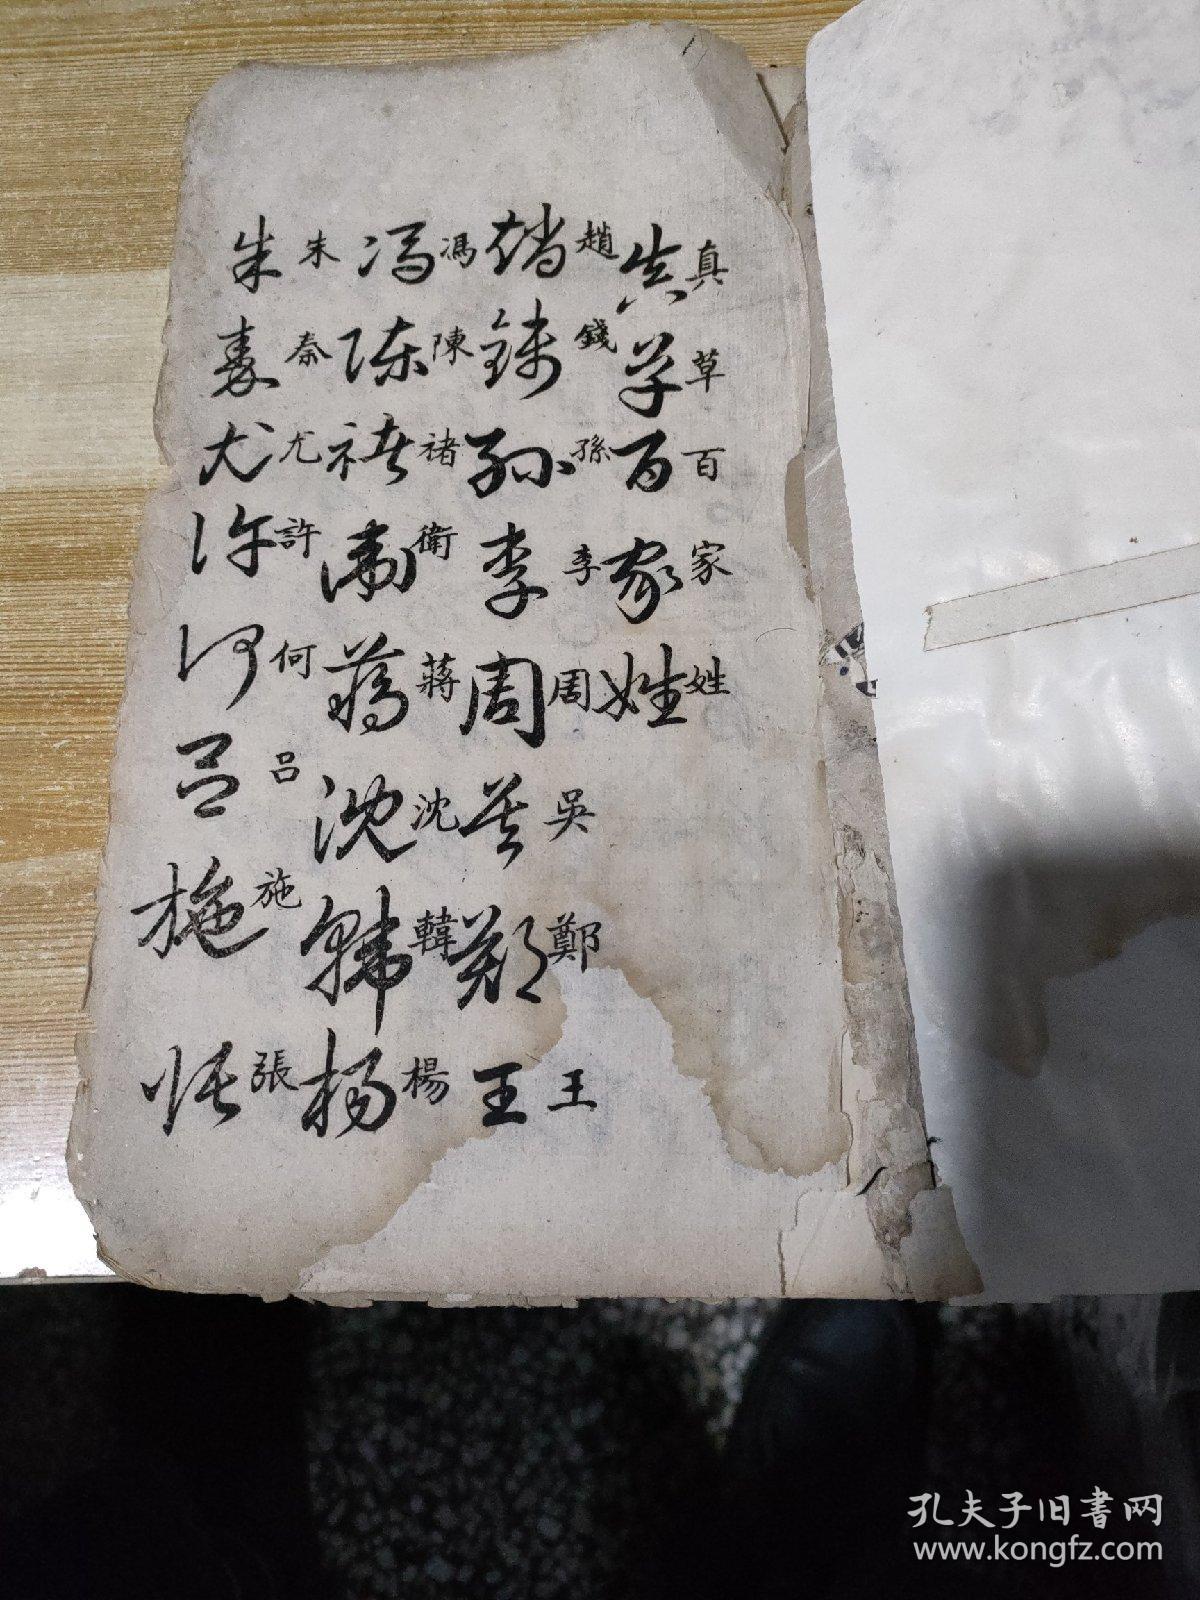 真草百家姓
真草百家姓
趙錢孫李周吳鄭王
趙錢孫李周吳鄭王
馮陳褚衛蔣沈韓楊
馮陳褚衛蔣沈韓楊
朱秦尤許何呂施張
朱秦尤許何呂施張
孔夫子旧書网
www.kongfz.com